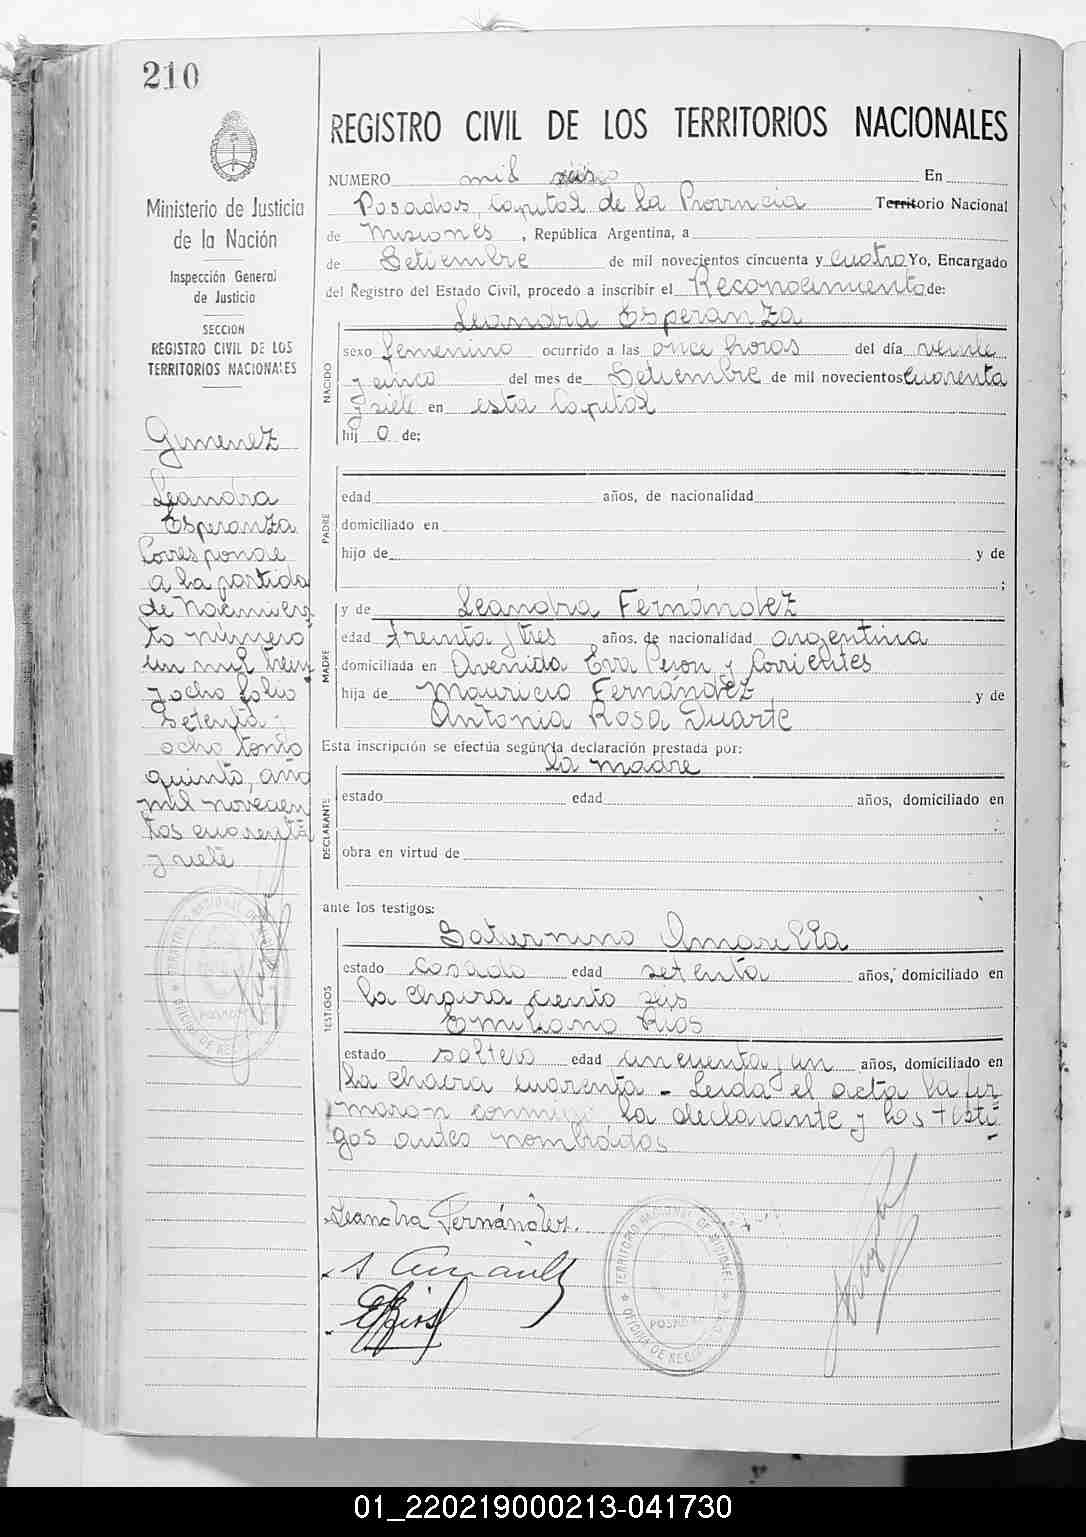 210
REGISTRO CIVIL DE LOS TERRITORIOS NACIONALES
Ministerio de Justicia
de la Nación
Inspección General
de Justicia
SECCION
REGISTRO CIVIL DE LOS
TERRITORIOS NACIONALES
Gimenez
Leandra
Esperanza
Corresponde
a la partida
de Nacimien
to número
un mil trein
y ocho folio
Setenta y
ocho tomo
quinto, año
mil novecien
tos cuarenta
y siete
NUMERO mil En
Posadas, Capital de la Provincia Territorio Nacional
de Misiones, República Argentina, a
de Setiembre de mil novecientos cincuenta y cuatro Yo, Encargado
del Registro del Estado Civil, procedo a inscribir el Reconocimiento de:
NACIDO
Leandra Esperanza
sexo femenino ocurrido a las once horas del día veinte
y cinco del mes de Setiembre de mil novecientos cuarenta
y siete en esta Capital
hij a de;
PADRE
edad años, de nacionalidad
domiciliado en
hijo de y de
;
MADRE
y de Leandra Fernández
edad treinta y tres años, de nacionalidad argentina
domiciliada en Avenida Eva Peron y Corrientes
hija de Mauricio Fernández y de
Antonia Rosa Duarte
Esta inscripción se efectúa según la declaración prestada por:
la madre
DECLARANTE
estado edad años, domiciliado en
obra en virtud de
ante los testigos:
TESTIGOS
Saturnino Amarilla
estado casado edad setenta años, domiciliado en
la chacra ciento seis
Emiliano Rios
estado soltero edad cincuenta y un años, domiciliado en
la chacra cuarenta - Leida el acta la fir
maron conmigo la declarante y los testi
gos antes nombrados
Leandra Fernández.
TERRITORIO NACIONAL DE MISIONES
POSADAS
OFICINA DE REGISTRO CIVIL
01_220219000213-041730